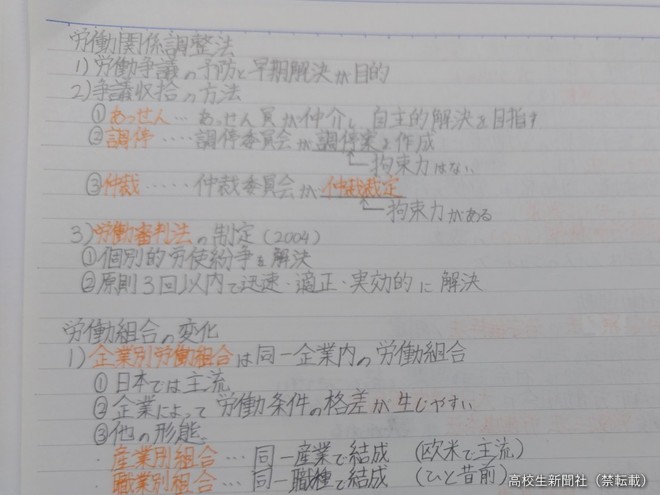 労働関係調整法
1)労働争議の予防と早期解決が目的
2)争議収拾の方法
①あっせん…あっせん員が仲介し、自主的解決を目指す
②調停……調停委員会が調停案を作成
拘束力はない
③仲裁……仲裁委員会が仲裁裁定
拘束力がある
3)労働審判法の制定(2004)
①個別的労使紛争を解決
②原則3回以内で迅速・適正・実効的に解決
労働組合の変化
1)企業別労働組合は同一企業内の労働組合
①日本では主流
②企業によって労働条件の格差が生じやすい
③他の形態
・産業別組合…同一産業で結成 (欧米で主流)
職業別組合…同一職種で結成 (ひと昔前)
高校生新聞社(禁転載)